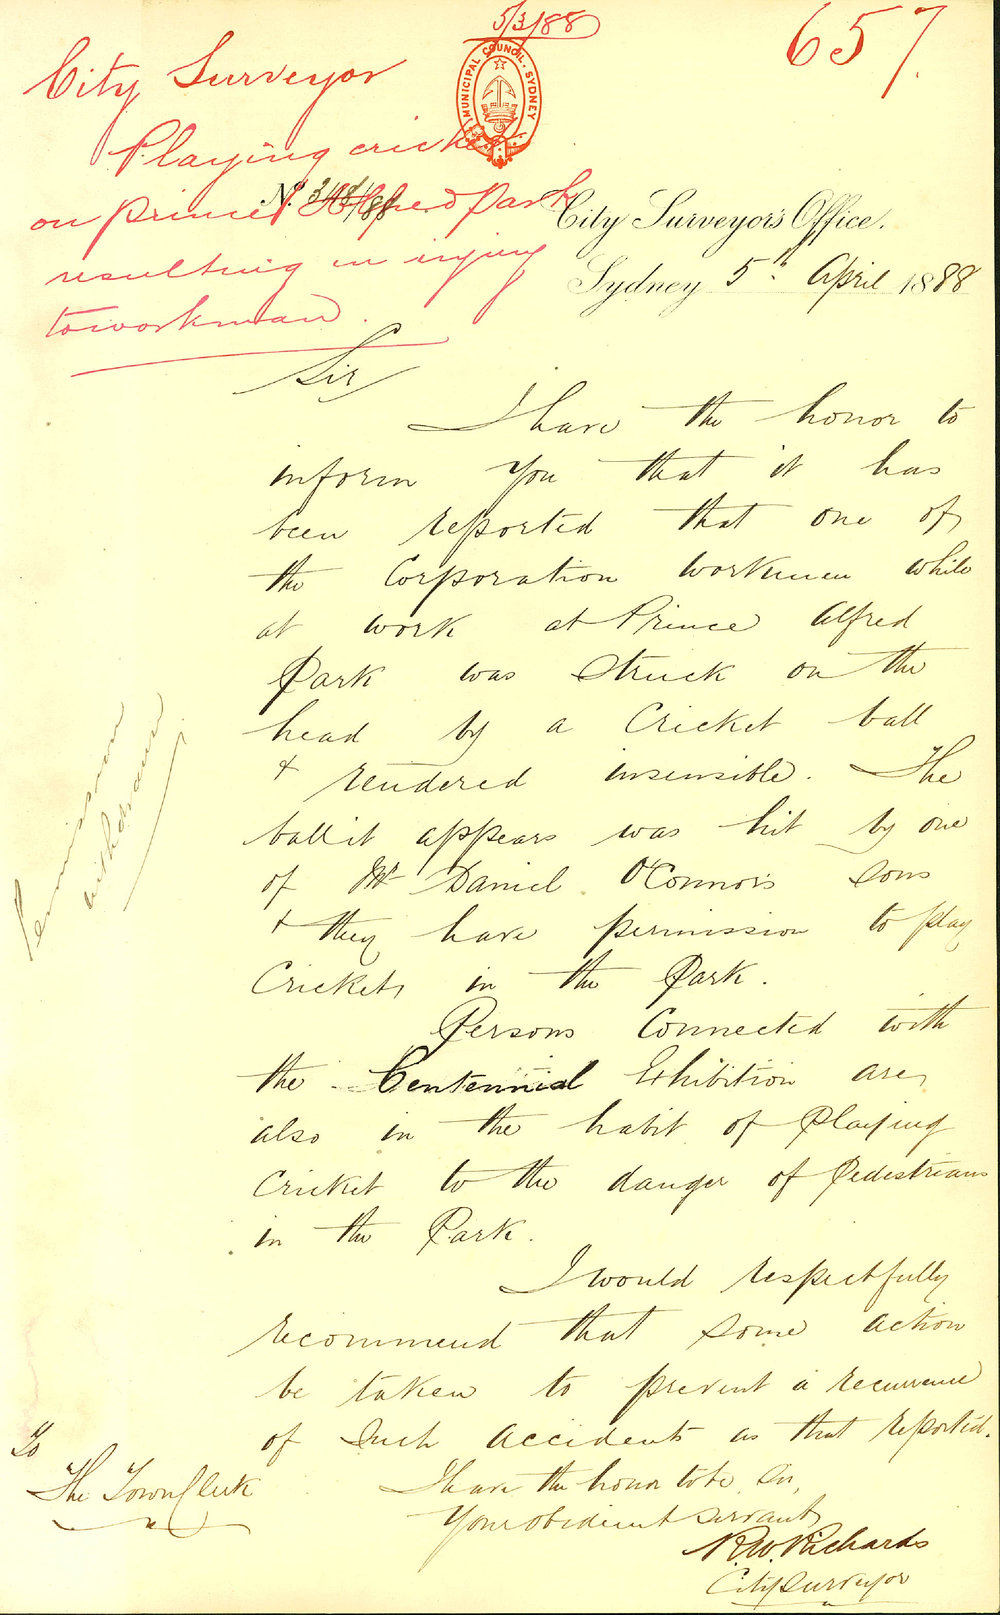 5/3/88
657.
City Surveyor
Playing cricket
on Prince Alfred Park
resulting in injury
to workman.
MUNICIPAL COUNCIL. SYDNEY
No. 348/88
City Surveyor's Office.
Sydney 5th April 1888
Sir
I have the honor to
inform you that it has
been reported that one of
the Corporation workmen while
at work at Prince Alfred
Park was struck on the
head by a Cricket ball
& rendered insensible. The
ball it appears was hit by one
of Mr Daniel O'Connor's Sons
& they have permission to play
Cricket, in the Park.
Persons Connected with
the Centennial Exhibition are,
also in the habit of Playing
Cricket to the danger of Pedestrians
in the Park.
I would respectfully
recommend that some action
be taken to prevent a recurrence
of Such Accidents as that reported.
I have the honor to be, Sir,
Your obedient Servant,
R.W. Richards
City Surveyor
To
The Town Clerk
Permission
withdrawn